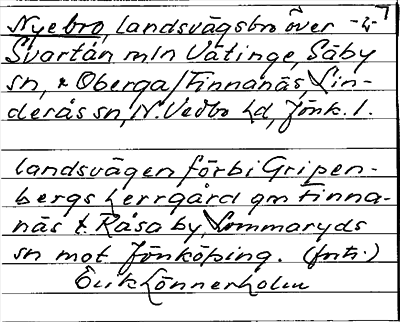 Nyebro, landsvägsbro över -z-
Svartån mln Vätinge, Säby
sn, & Oberga/Finnanäs, Lin-
derås sn, N. Vedbo hd, Jönk. l.
landsvägen förbi Gripen-
bergs herrgård gm Finna-
näs & Råsa by, Lommaryds
sn mot Jönköping.
Erik Lönnerholm